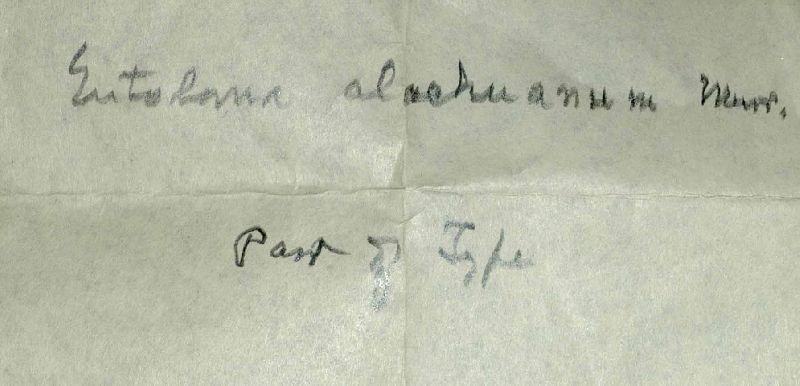 Entoloma alachuanum Murr.
Part of Type